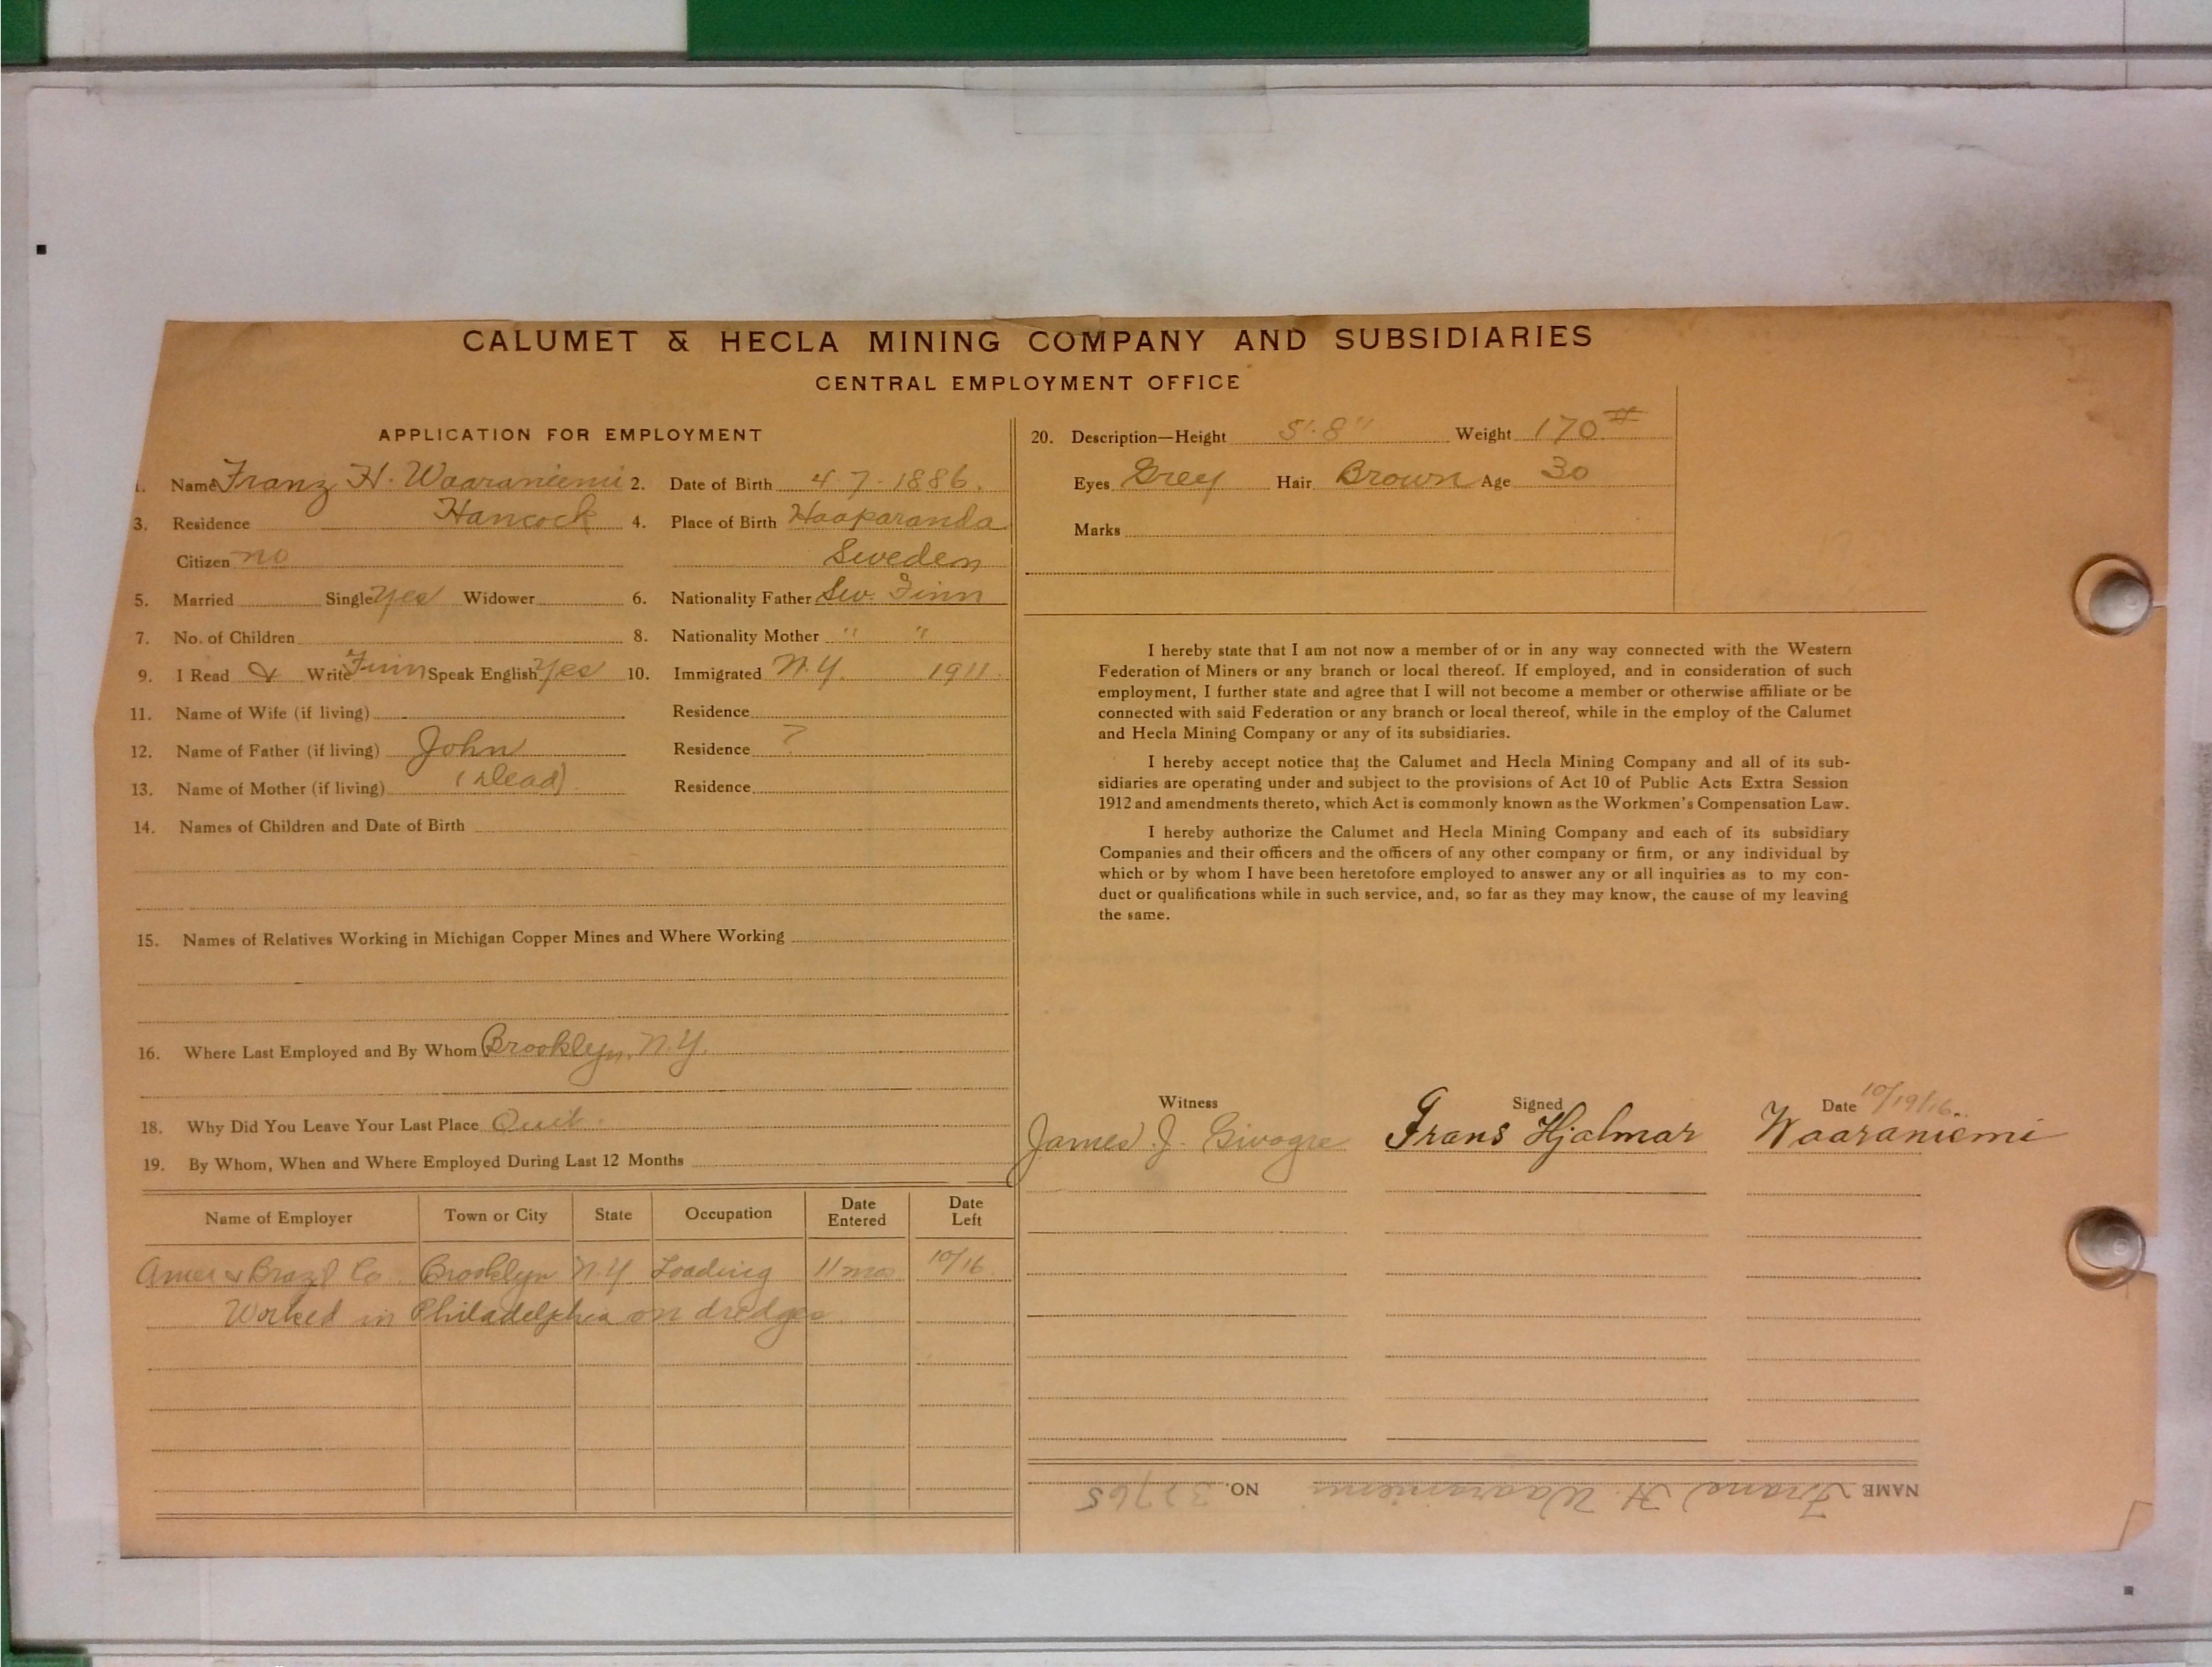 CALUMET & HECLA MINING COMPANY AND SUBSIDIARIES
CENTRAL EMPLOYMENT OFFICE
APPLICATION FOR EMPLOYMENT
1. Name Franz H. Waaraniemi 2. Date of Birth 4 7 - 1886.
3. Residence Hancock 4. Place of Birth Haaparanda
Citizen no Sweden
5. Married Single Yes Widower 6. Nationality Father Sw. Finn
7. No. of Children 8. Nationality Mother " "
9. I Read & Write Finn Speak English Yes 10. Immigrated N.Y. 1911.
11. Name of Wife (if living) Residence
12. Name of Father (if living) John Residence ?
13. Name of Mother (if living) (Dead) Residence
14. Names of Children and Date of Birth
15. Names of Relatives Working in Michigan Copper Mines and Where Working
16. Where Last Employed and By Whom Brooklyn, N.Y.
18. Why Did You Leave Your Last Place Quit.
19. By Whom, When and Where Employed During Last 12 Months
Name of Employer Town or City State Occupation Date Entered Date Left
Amer & Brazil Co Brooklyn N.Y Loading 11 mos 10/16
Worked in Philadelphia on dredges
20. Description—Height 5'.8" Weight 170 #
Eyes Grey Hair Brown Age 30
Marks
I hereby state that I am not now a member of or in any way connected with the Western
Federation of Miners or any branch or local thereof. If employed, and in consideration of such
employment, I further state and agree that I will not become a member or otherwise affiliate or be
connected with said Federation or any branch or local thereof, while in the employ of the Calumet
and Hecla Mining Company or any of its subsidiaries.
I hereby accept notice that the Calumet and Hecla Mining Company and all of its sub-
sidiaries are operating under and subject to the provisions of Act 10 of Public Acts Extra Session
1912 and amendments thereto, which Act is commonly known as the Workmen's Compensation Law.
I hereby authorize the Calumet and Hecla Mining Company and each of its subsidiary
Companies and their officers and the officers of any other company or firm, or any individual by
which or by whom I have been heretofore employed to answer any or all inquiries as to my con-
duct or qualifications while in such service, and, so far as they may know, the cause of my leaving
the same.
Witness Signed Date 10/19/16.
James J. Frans Hjalmar Waaraniemi
NAME Franz H. Waaraniemi NO.